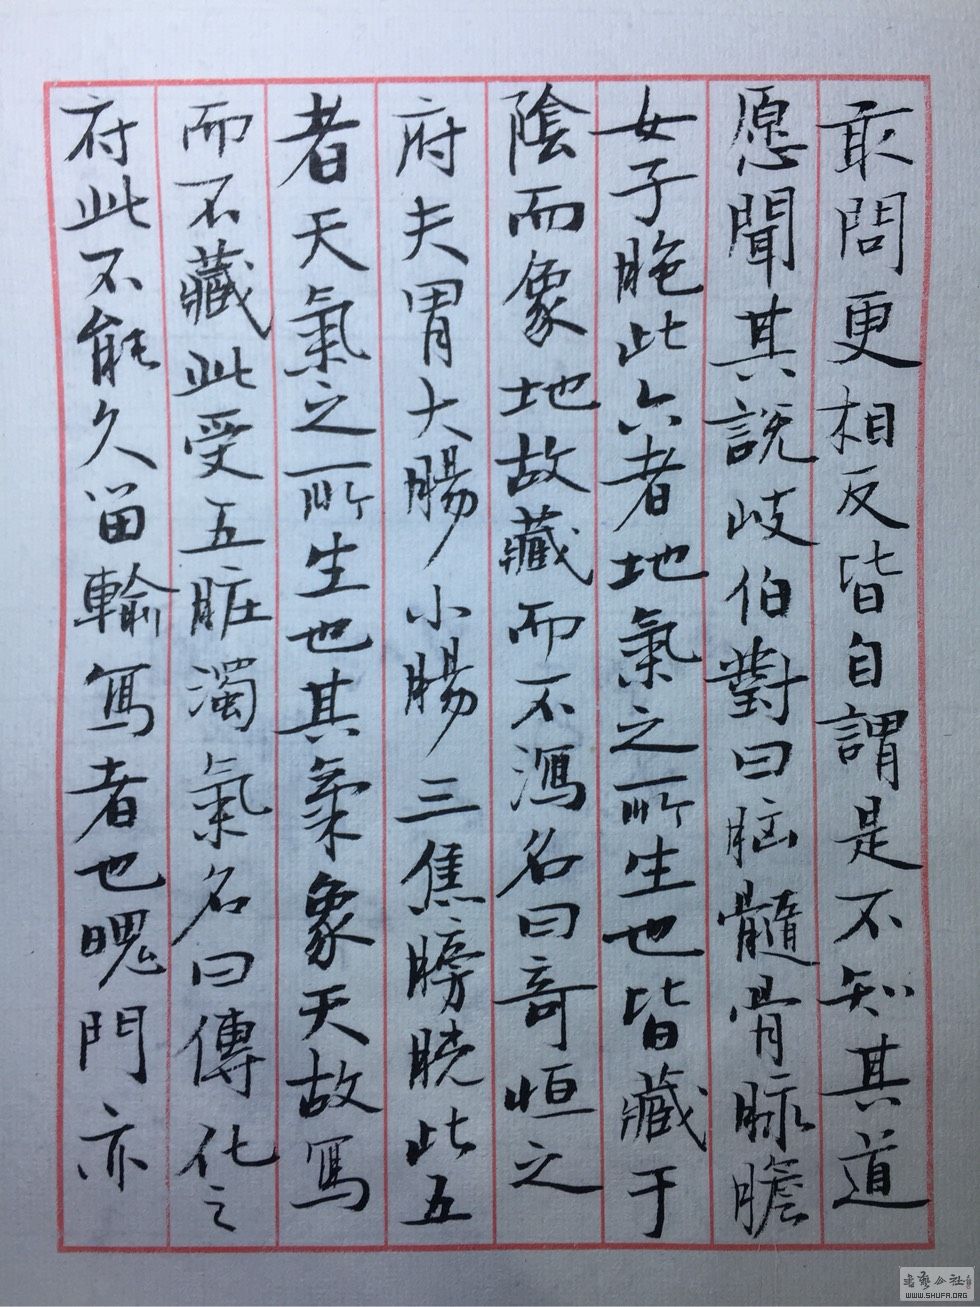 敢問更相反皆自謂是不知其道
愿聞其説岐伯對曰脑髓骨脉膽
女子胞此六者地氣之所生也皆藏于
陰而象地故藏而不瀉名曰奇恒之
府夫胃大腸小腸三焦膀胱此五
者天氣之所生也其氣象天故寫
而不藏此受五脏濁氣名曰傳化之
府此不能久留輸寫者也魄門亦
書藝公社
WWW.SHUFA.ORG